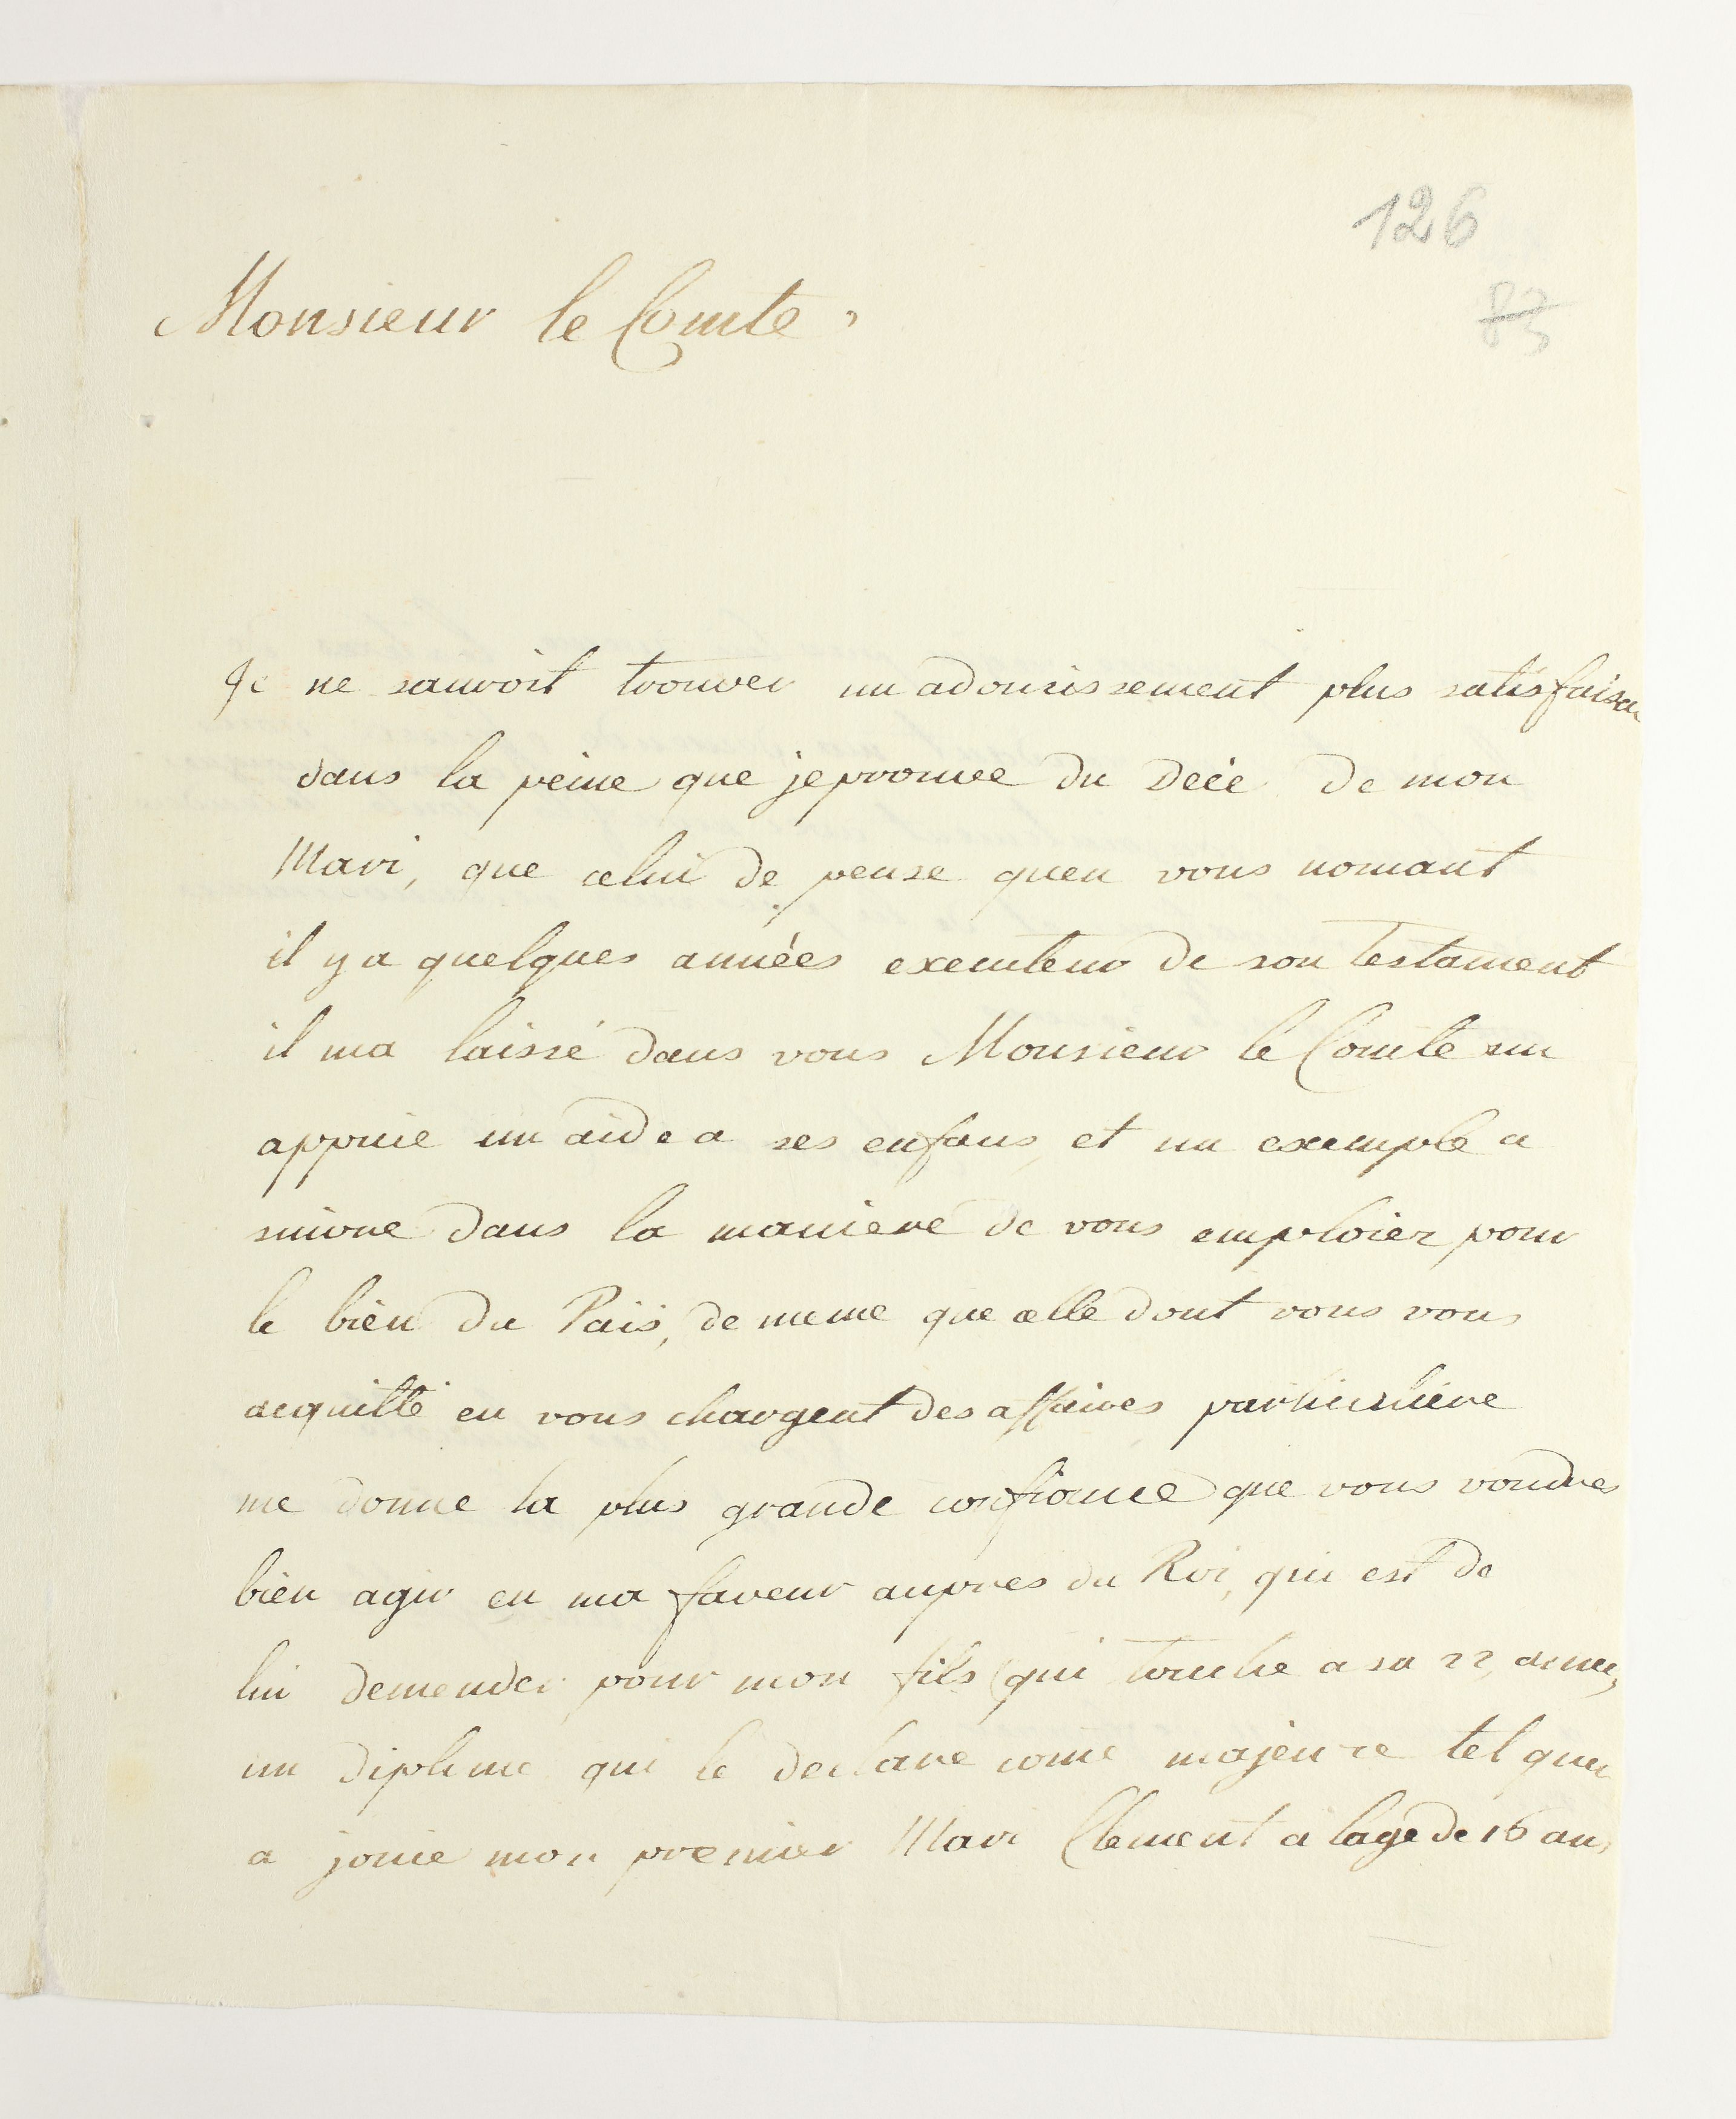 126
83
Monsieur le Comte,
Je ne sauroit trouver un adoucissement plus satisfaisan
dans la peine que jeprouve du Decè De mon
Mari, que celui De pense quen vous nomant
il y a quelques années executeur De son Testament
il ma laissé Dans vous Monsieur le Comte un
appuie un aide a ses enfans, et un exemple a
suivre Dans la maniere de vous emploier pour
le bien Du Païs, de meme que celle Dont vous vous
acquitté en vous chargent Des affaires particuliere
me donne la plus grande confiance que vous voudres
bien agir en ma faveur aupres du Roi, qui est de
lui demender pour mon fils (qui touche a sa 22, annee,
un Diplome qui le declare come majeure tel quen
a jouie mon premier Mari Clement a lage De 16 ans